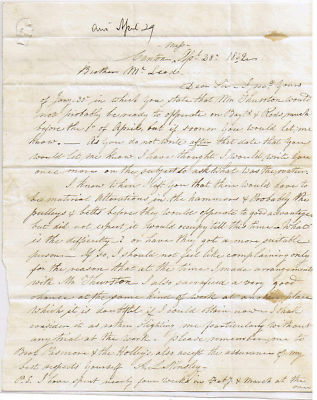 ans April 29
Miss
Canton Apl. 28th
Brother Mc
Dear Sir I recd yours
of Jany 30th in which you state that Mr. Thurston would
not probably be ready to operate on Bay & Rods much
before the 1st of April, but if sooner you would let me
know. — As you do not write after that date that you
would let me know I have thought I would write you
once more on the subject to ask what was the matter.
I knew when I left you that there would have to
be material alterations in the hammers & probably the
pulleys & belts before they would operate to good advantage
but did not expect it would occupy till this time. What
is the difficulty? or have they got a more suitable
person — If so, I should not feel like complaining only
for the reason that at the time I made arrangements
with Mr. Thurston I also sacrificed a very good
chance at the same kind of work at another place
which it is doubtful if I could obtain now & I shall
consider it as rather slighting me particularly without
any trial at the work. please remember me to
Brot & the Holly's also accept the assurance of my
best respects yourself
P.S. I have spent nearly four weeks in & much at the